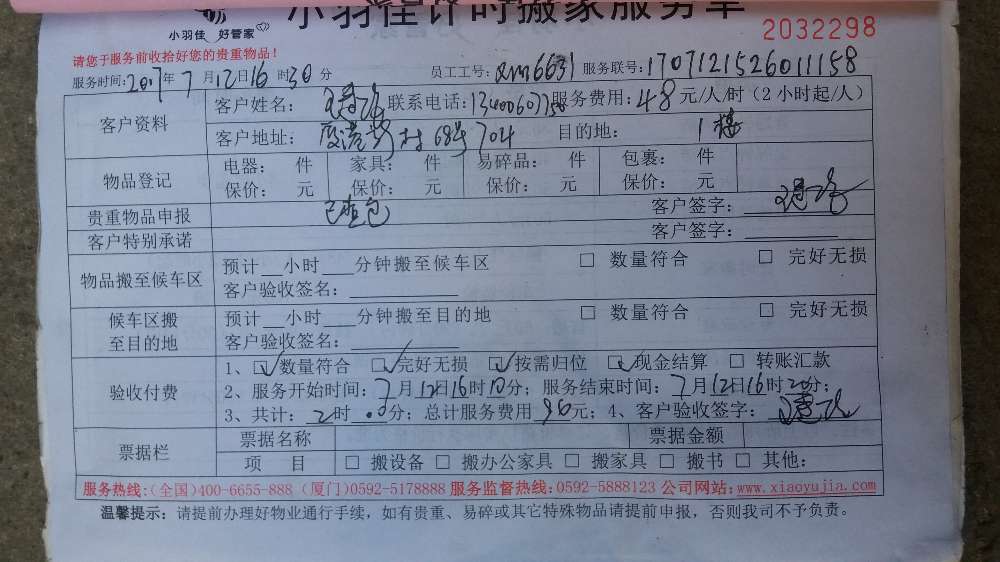 小羽佳计时搬家服务单
小羽佳 好管家
2032298
请您于服务前收拾好您的贵重物品!
服务时间: 2017年7月12日16时30分 员工工号: 服务联号: 1707121526011158
客户资料 客户姓名: 联系电话: 服务费用: 48元/人/时 (2小时起/人)
客户地址: 村68号704 目的地: 1楼
物品登记 电器: 件 家具: 件 易碎品: 件 包裹: 件
保价: 元 保价: 元 保价: 元 保价: 元
贵重物品申报 客户签字:
客户特别承诺 客户签字:
物品搬至候车区 预计__小时___分钟搬至候车区 □ 数量符合 □ 完好无损
客户验收签名:
候车区搬至目的地 预计__小时___分钟搬至目的地 □ 数量符合 □ 完好无损
客户验收签名:
验收付费 1、☑数量符合 ☑完好无损 ☑按需归位 ☑现金结算 □ 转账汇款
2、服务开始时间: 7月12日16时10分; 服务结束时间: 7月12日16时20分;
3、共计: 2时 分; 总计服务费用 96元; 4、客户验收签字:
票据栏 票据名称 票据金额
项 目 □ 搬设备 □ 搬办公家具 □ 搬家具 □ 搬书 □ 其他:
服务热线:(全国)400-6655-888 (厦门)0592-5178888 服务监督热线:0592-5888123 公司网站:www.xiaoyujia.com
温馨提示: 请提前办理好物业通行手续, 如有贵重、易碎或其它特殊物品请提前申报, 否则我司不予负责。